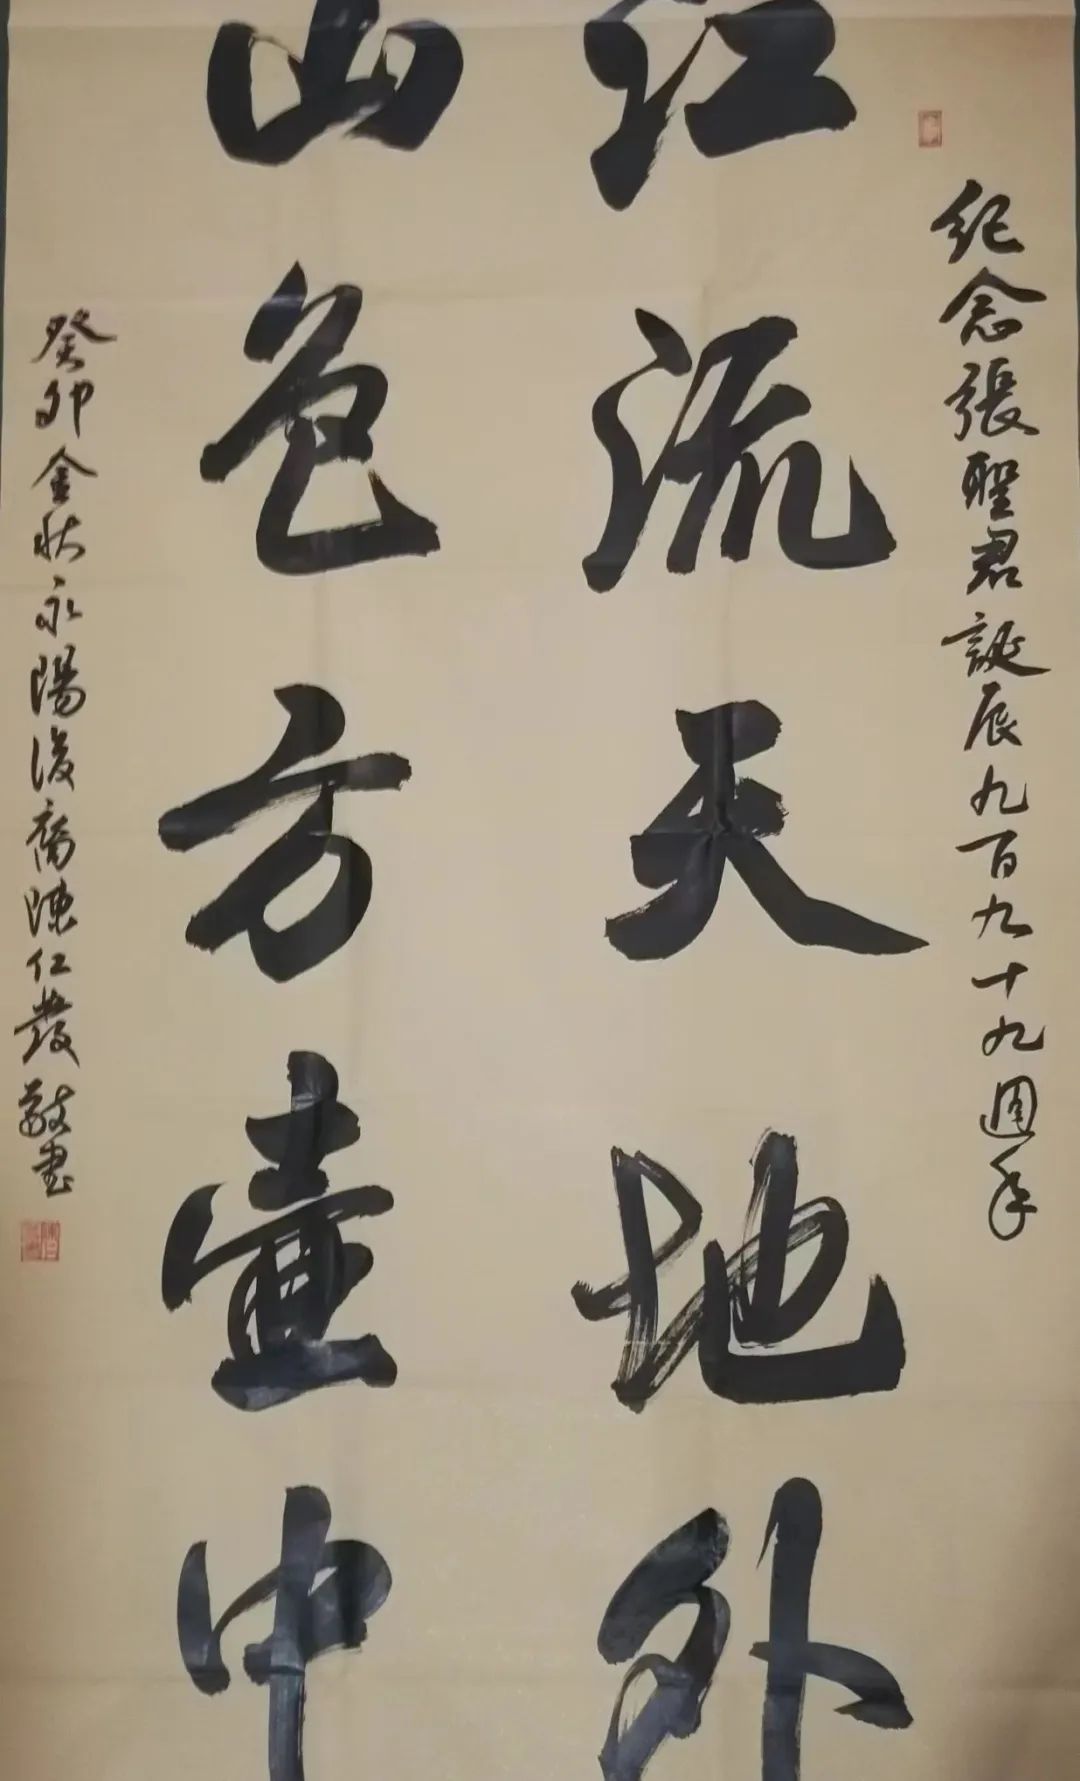 紀念張聖君誕辰九百九十九週年
江流天地外
山色方壺中
癸卯金秋永陽後裔陳仁發敬書